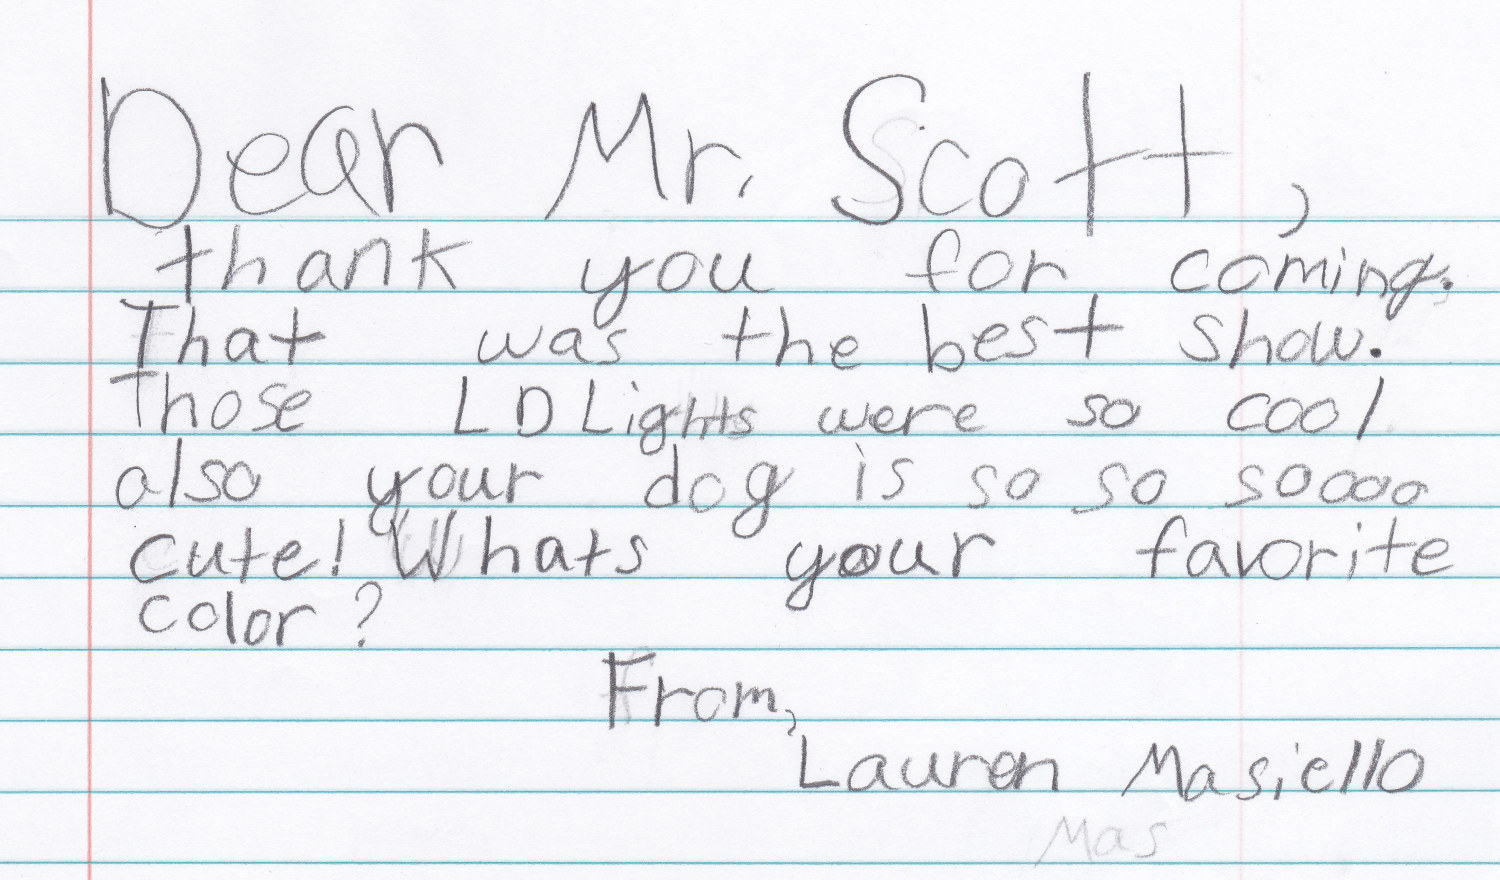 Dear Mr. Scott,
thank you for coming.
That was the best show.
Those LD Lights were so cool
also your dog is so so soooo
cute! Whats your favorite
color?
From,
Lauren Masiello
Mas